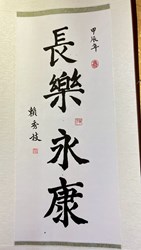 甲辰年
長樂永康
賴秀枝